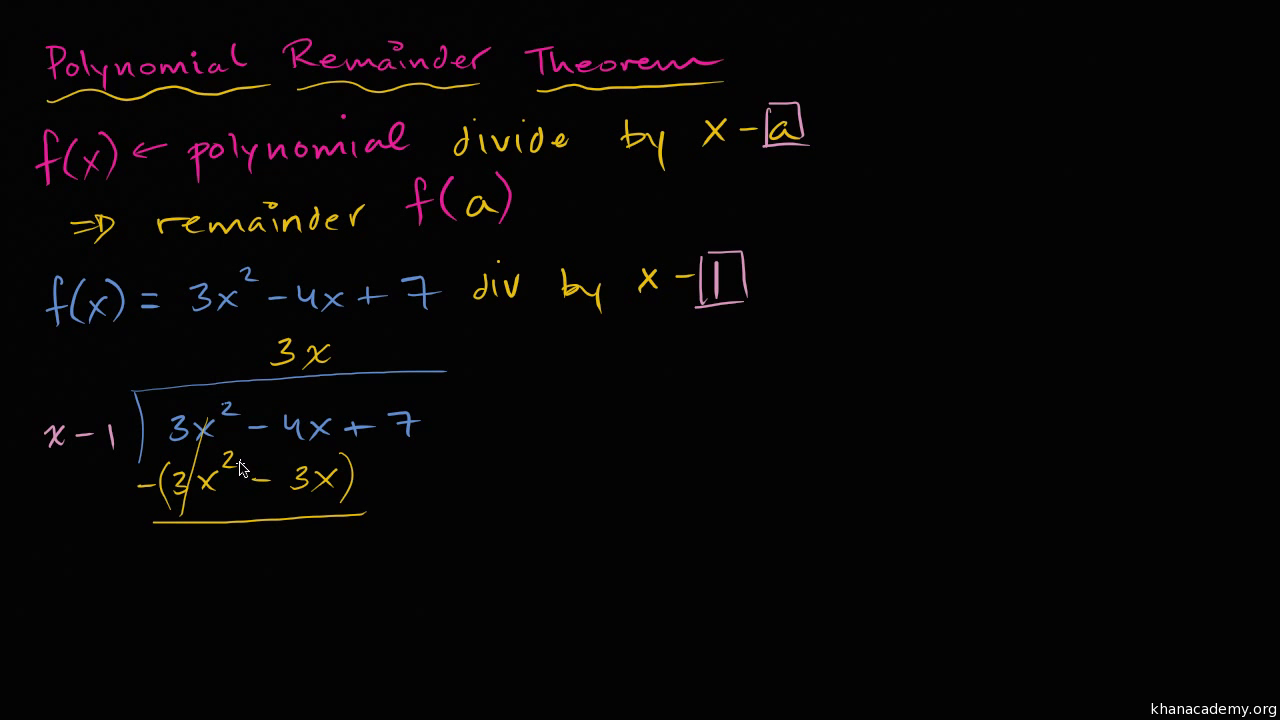 Polynomial Remainder Theorem
f(x) ← polynomial divide by x - a
⇒ remainder f(a)
f(x) = 3x² - 4x + 7 div by x - 1
3x
x - 1 3x² - 4x + 7
-(3x² - 3x)
khanacademy.org